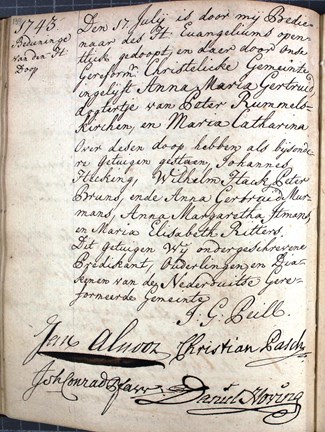 1743
Bedieninge
van den H.
Doop
Den 17. Julij is door mij Bedie-
naar des H. Euangeliums open-
tlijk gedoopt, en daer door onse
Gereform. Christelicke Gemeinte
ingelijft Anna Maria Gertruid,
dogtertje van Peter Rummels-
Kirchen, en Maria Catharina
Over desen doop hebben als bijsonde-
re getuigen gestaen, Johannes
Wilhelm Hack, Peter
Bruns, ende Anna Gertruid Mur-
mans, Anna Margaretha
en Maria Elisabeth Ritters.
Dit getuigen wij ondergeschrevene
Predikant, Ouderlingen en Dia-
kenen van de Nederduitse Gere-
formeerde Gemeinte
J. G. Pull.
Jan Christian Pasch
Joh Conrad
Daniel Hoving